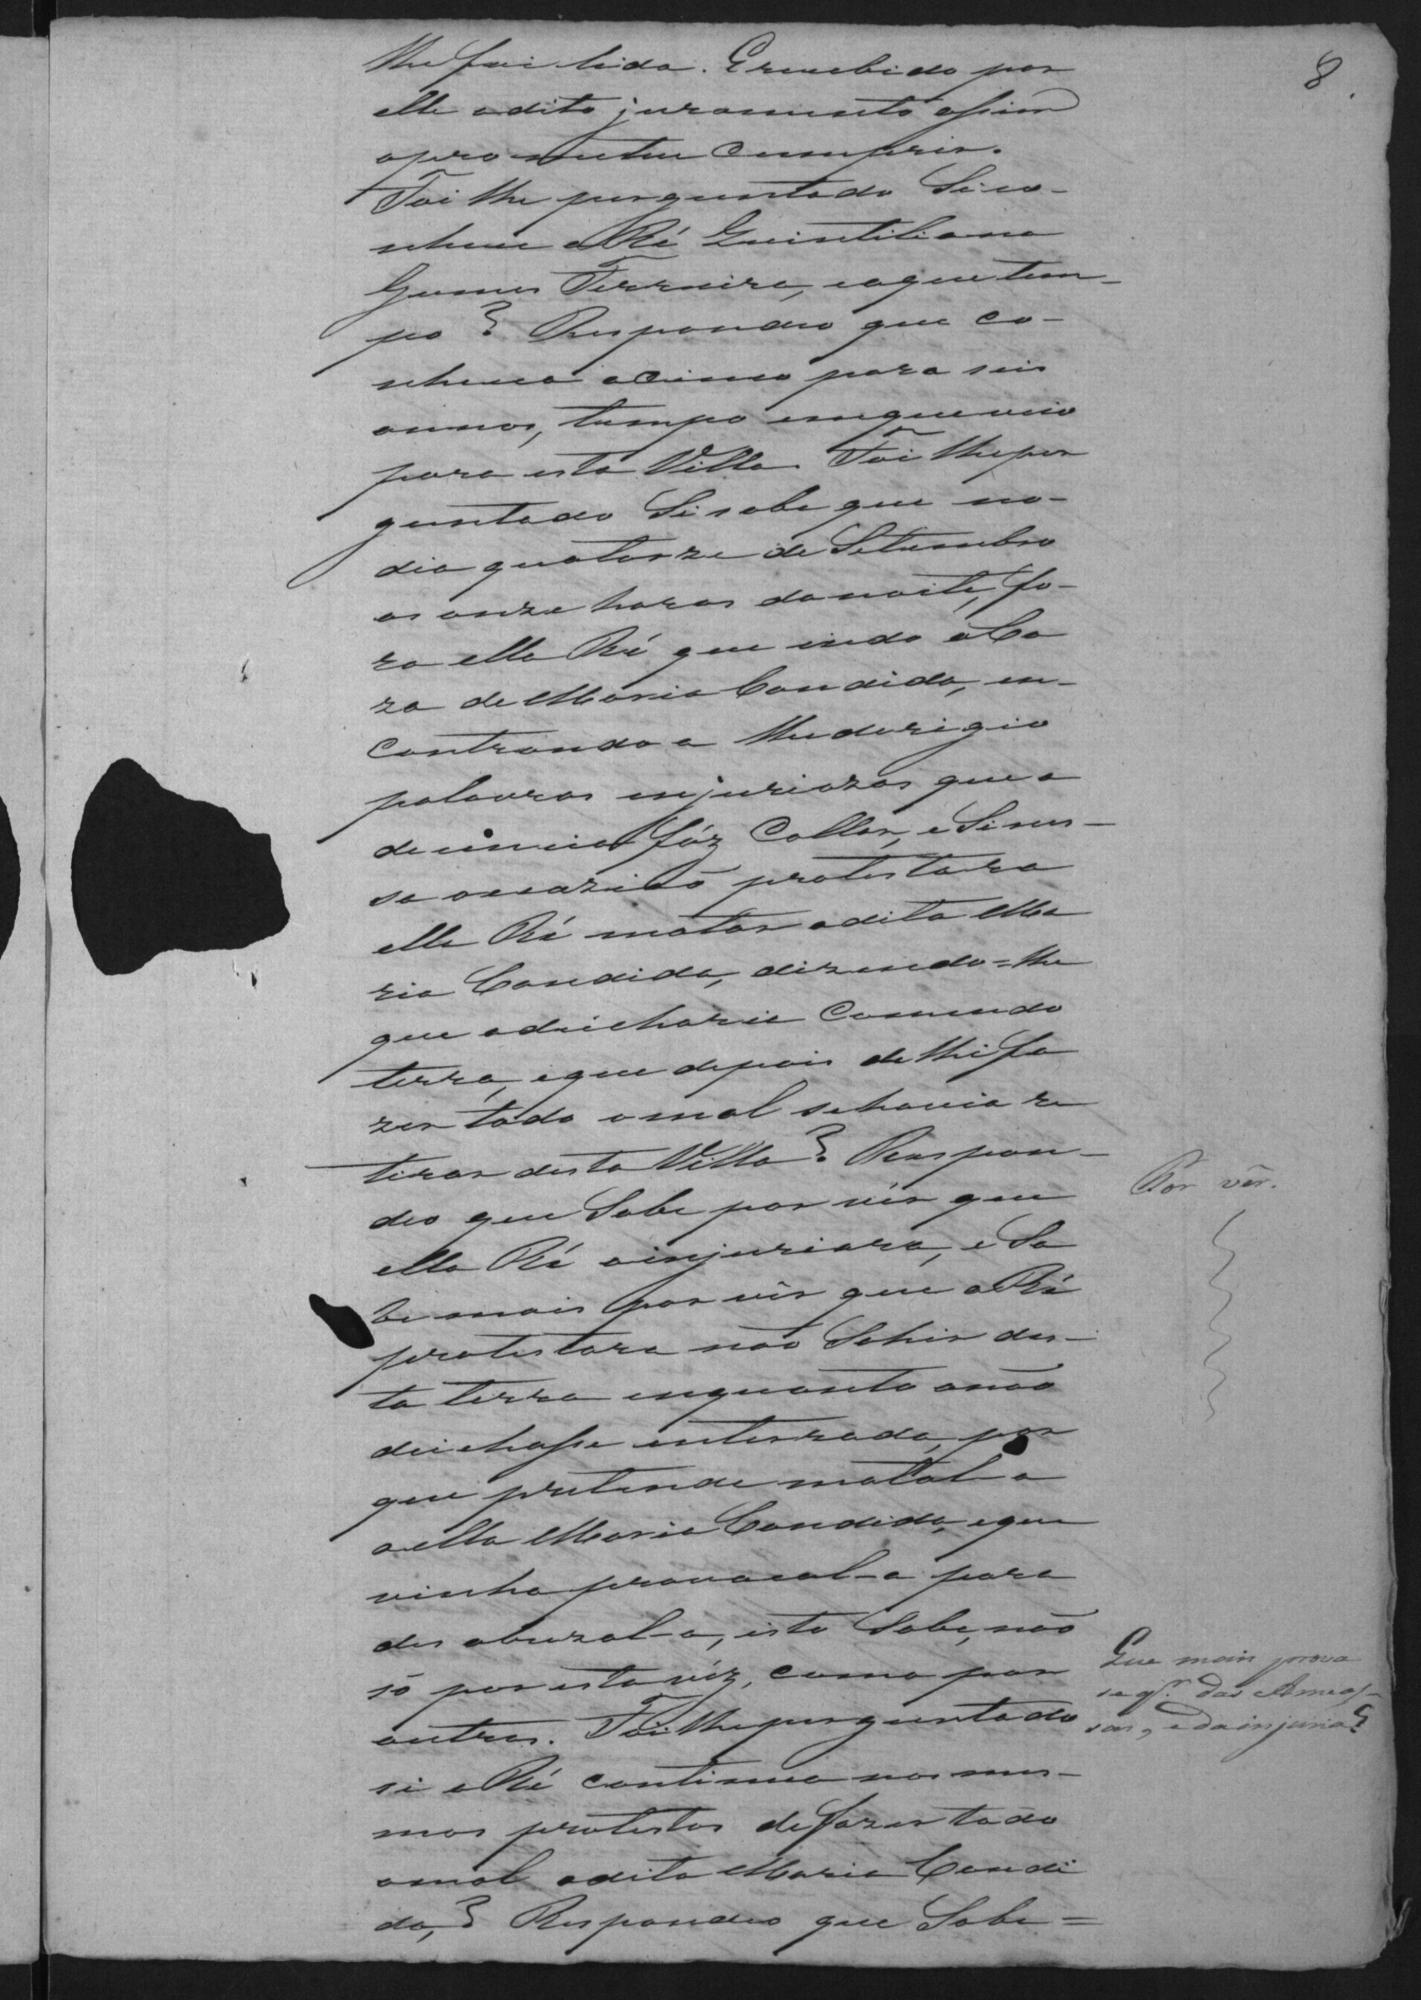 8
lhe foi lida. E recebido por
elle o dito juramento assim
o prometeu cumprir.
Foi lhe perguntado Si co-
nhece a Ré Quintiliana
Gomes Ferreira, e a que tem-
po? Respondeo que co-
nhece a cinco para seis
annos, tempo em que veio
para esta Villa. Foi lhe per
guntado Si sabe que no
dia quatorze de Setembro
as onze horas da noite, fo-
ra ella Ré que indo á Ca
za de Maria Candida, en-
contrando a lhe derigio
palavras injuriozas que a
denuncia fáz Collar, e Si nes-
sa occazião protestara
ella Ré matar a dita Ma
ria Candida, dizendo=lhe
que a deicharia Comendo
terra, e que depois de lhe fa
zer todo o mal se havia re
tirar desta Villa? Respon-
deo que Sabe por vêr que
ella Ré a injuriara, e Sa
be mais por vêr que a Ré
protestara não Sahir des-
ta terra enquanto a não
deichasse enterrada, por
que pretende matal-a
a ella Maria Candida, e que
vinha provocal-a para
desabuzal-a, isto Sabe, não
só por esta véz, como por
outras. Foi lhe perguntado
si a Ré continua nos mes-
mos protestos de fazer todo
o mal a dita Maria Candi
da,? Respondeo que Sabe=
Por vêr.
Que mais prova
se qr. das Ameas-
sas, e da injuria?